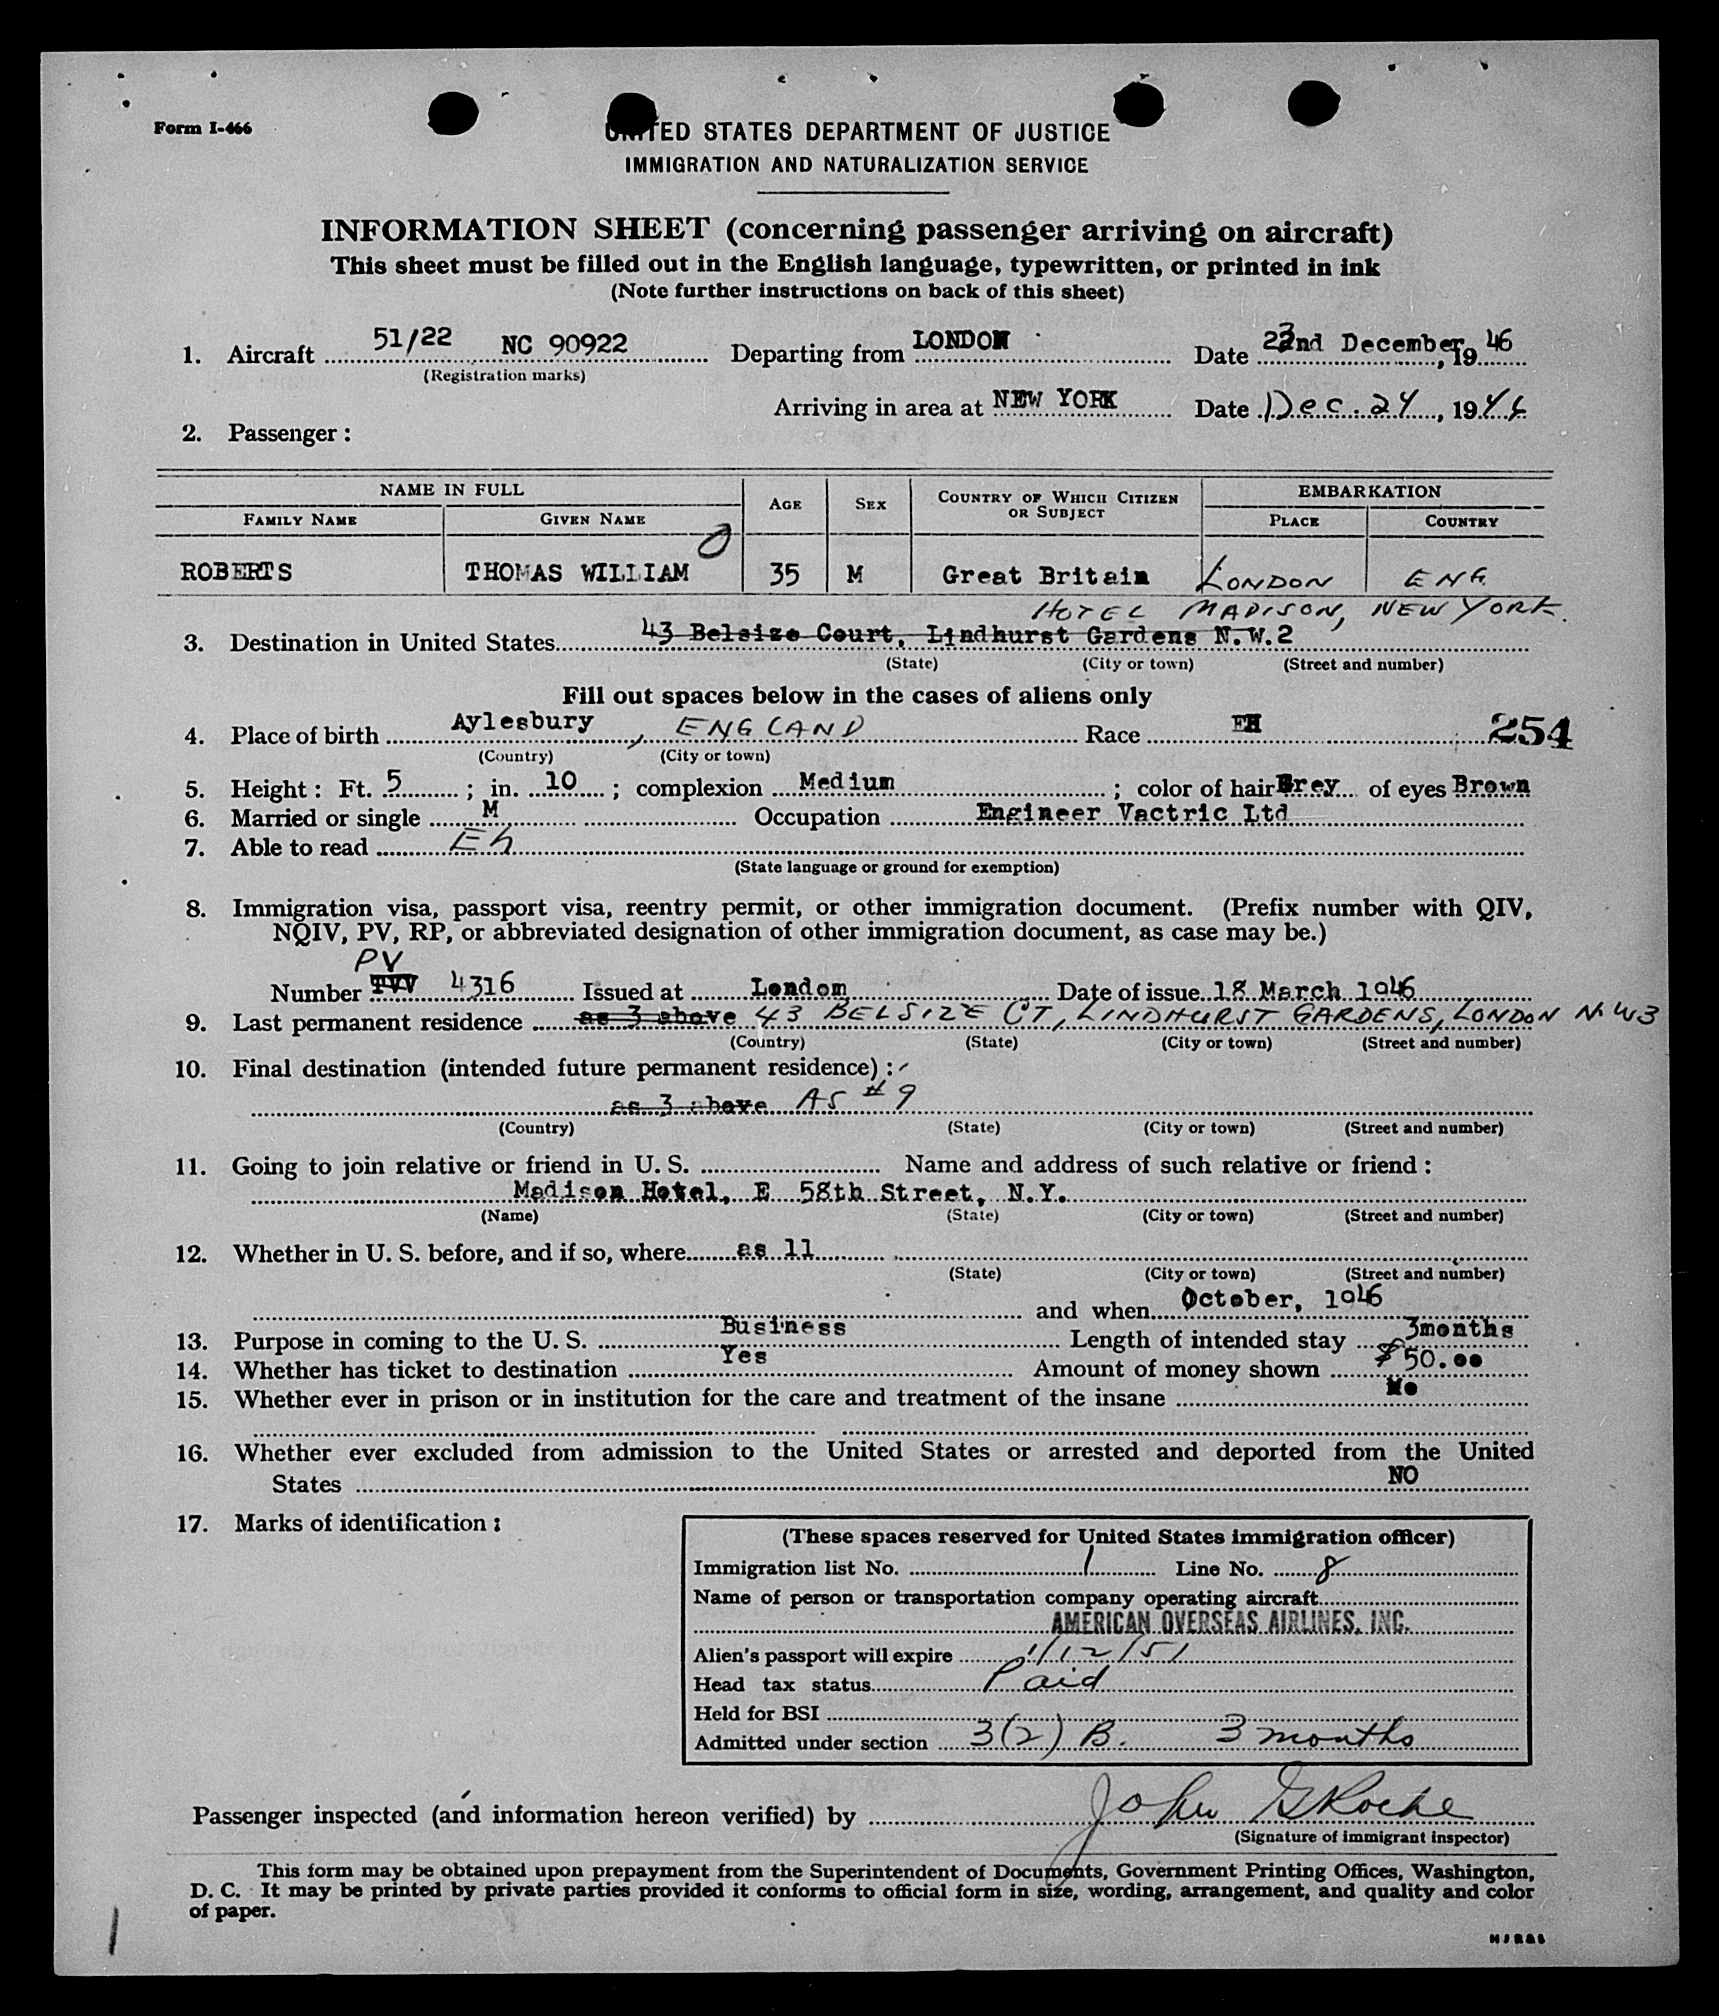 Form I-466
UNITED STATES DEPARTMENT OF JUSTICE
IMMIGRATION AND NATURALIZATION SERVICE
INFORMATION SHEET (concerning passenger arriving on aircraft)
This sheet must be filled out in the English language, typewritten, or printed in ink
(Note further instructions on back of this sheet)
1. Aircraft 51/22 NC 90922 Departing from LONDON Date 22nd December, 19 46
(Registration marks)
Arriving in area at NEW YORK Date Dec. 24, 1946
2. Passenger:
NAME IN FULL AGE SEX COUNTRY OF WHICH CITIZEN OR SUBJECT EMBARKATION
FAMILY NAME GIVEN NAME PLACE COUNTRY
ROBERTS THOMAS WILLIAM 35 M Great Britain LONDON ENG
HOTEL MADISON, NEW YORK.
3. Destination in United States 43 Belsize Court, Lindhurst Gardens N.W.2
(State) (City or town) (Street and number)
Fill out spaces below in the cases of aliens only
4. Place of birth Aylesbury, ENGLAND Race 254
(Country) (City or town)
5. Height: Ft. 5; in. 10; complexion Medium; color of hair Grey of eyes Brown
6. Married or single M Occupation Engineer Vactric Ltd
7. Able to read Eh
(State language or ground for exemption)
8. Immigration visa, passport visa, reentry permit, or other immigration document. (Prefix number with QIV,
NQIV, PV, RP, or abbreviated designation of other immigration document, as case may be.)
PV
Number TVV 4316 Issued at London Date of issue 18 March 1946
9. Last permanent residence as 3 above 43 BELSIZE CT, LINDHURST GARDENS, LONDON N.W3
(Country) (State) (City or town) (Street and number)
10. Final destination (intended future permanent residence):
as 3 above AS #9
(Country) (State) (City or town) (Street and number)
11. Going to join relative or friend in U. S. Name and address of such relative or friend:
Madison Hotel, E 58th Street, N.Y.
(Name) (State) (City or town) (Street and number)
12. Whether in U. S. before, and if so, where as 11
(State) (City or town) (Street and number)
and when October, 1946
13. Purpose in coming to the U. S. Business Length of intended stay 3months
14. Whether has ticket to destination Yes Amount of money shown $50.00
15. Whether ever in prison or in institution for the care and treatment of the insane No
16. Whether ever excluded from admission to the United States or arrested and deported from the United
States NO
17. Marks of identification:
(These spaces reserved for United States immigration officer)
Immigration list No. 1 Line No. 8
Name of person or transportation company operating aircraft
AMERICAN OVERSEAS AIRLINES, INC.
Alien's passport will expire 1/12/51
Head tax status Paid
Held for BSI
Admitted under section 3(2) B. 3 months
Passenger inspected (and information hereon verified) by John G Roche
(Signature of immigrant inspector)
This form may be obtained upon prepayment from the Superintendent of Documents, Government Printing Offices, Washington,
D. C. It may be printed by private parties provided it conforms to official form in size, wording, arrangement, and quality and color
of paper.